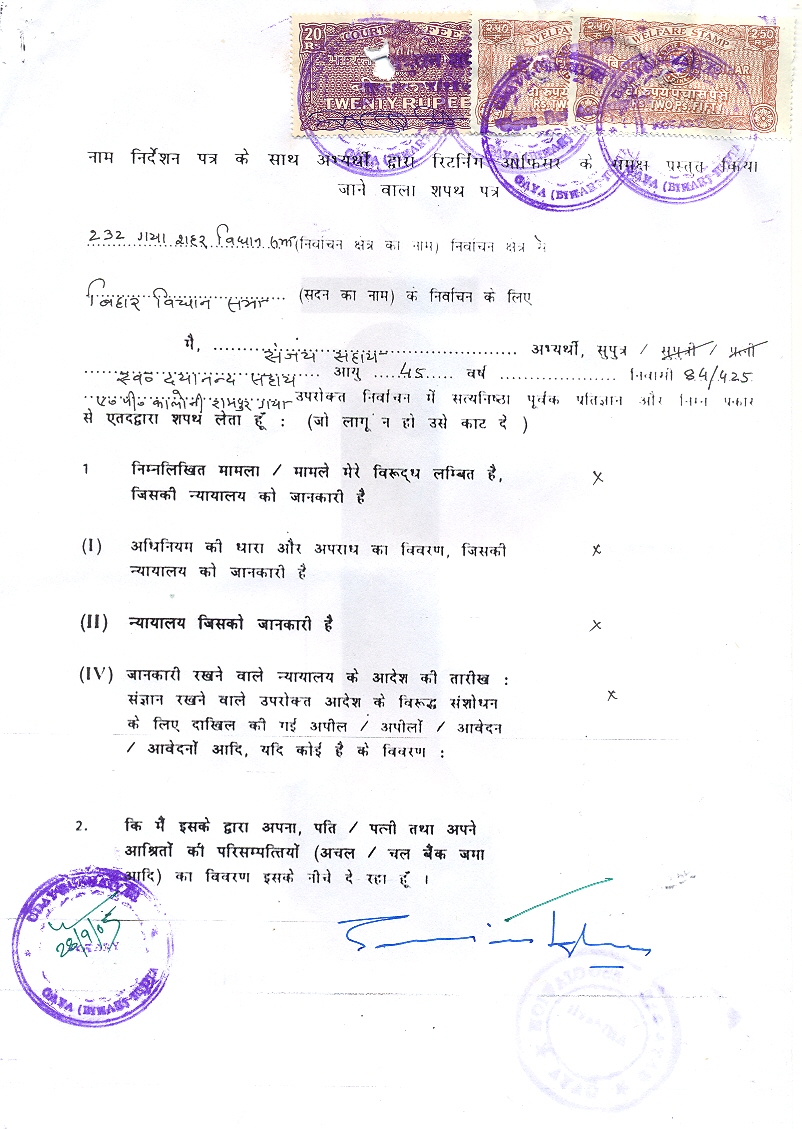 20 COURT FEE
RS.
TWENTY RUPEE
WELFARE STAMP 2.50
BIHAR
RS. TWO PS. FIFTY
GAYA (BIHAR)
नाम निर्देशन पत्र के साथ अभ्यर्थी द्वारा रिटर्निंग आफिसर के समक्ष प्रस्तुत किया
जाने वाला शपथ पत्र
232 गया शहर विधान सभा (निर्वाचन क्षेत्र का नाम) निर्वाचन क्षेत्र से
बिहार विधान सभा (सदन का नाम) के निर्वाचन के लिए
मै, संजय सहाय अभ्यर्थी, सुपुत्र / सुपुत्री / पत्नी
स्व० दयानन्द सहाय आयु 45 वर्ष निवासी 84/425
ए० पी० कालोनी रामपुर गया उपरोक्त निर्वाचन में सत्यनिष्ठा पूर्वक प्रतिज्ञान और निम्न प्रकार
से एतदद्वारा शपथ लेता हूँ : (जो लागू न हो उसे काट दे )
1 निम्नलिखित मामला / मामले मेरे विरूद्ध लम्बित है, x
जिसकी न्यायालय को जानकारी है
(I) अधिनियम की धारा और अपराध का विवरण, जिसकी x
न्यायालय को जानकारी है
(II) न्यायालय जिसको जानकारी है x
(IV) जानकारी रखने वाले न्यायालय के आदेश की तारीख :
संज्ञान रखने वाले उपरोक्त आदेश के विरूद्ध संशोधन x
के लिए दाखिल की गई अपील / अपीलों / आवेदन
/ आवेदनों आदि, यदि कोई है के विवरण :
2. कि मैं इसके द्वारा अपना, पति / पत्नी तथा अपने
आश्रितों की परिसम्पत्तियों (अचल / चल बैंक जमा
आदि) का विवरण इसके नीचे दे रहा हूँ ।
28/9/05
GAYA (BIHAR)